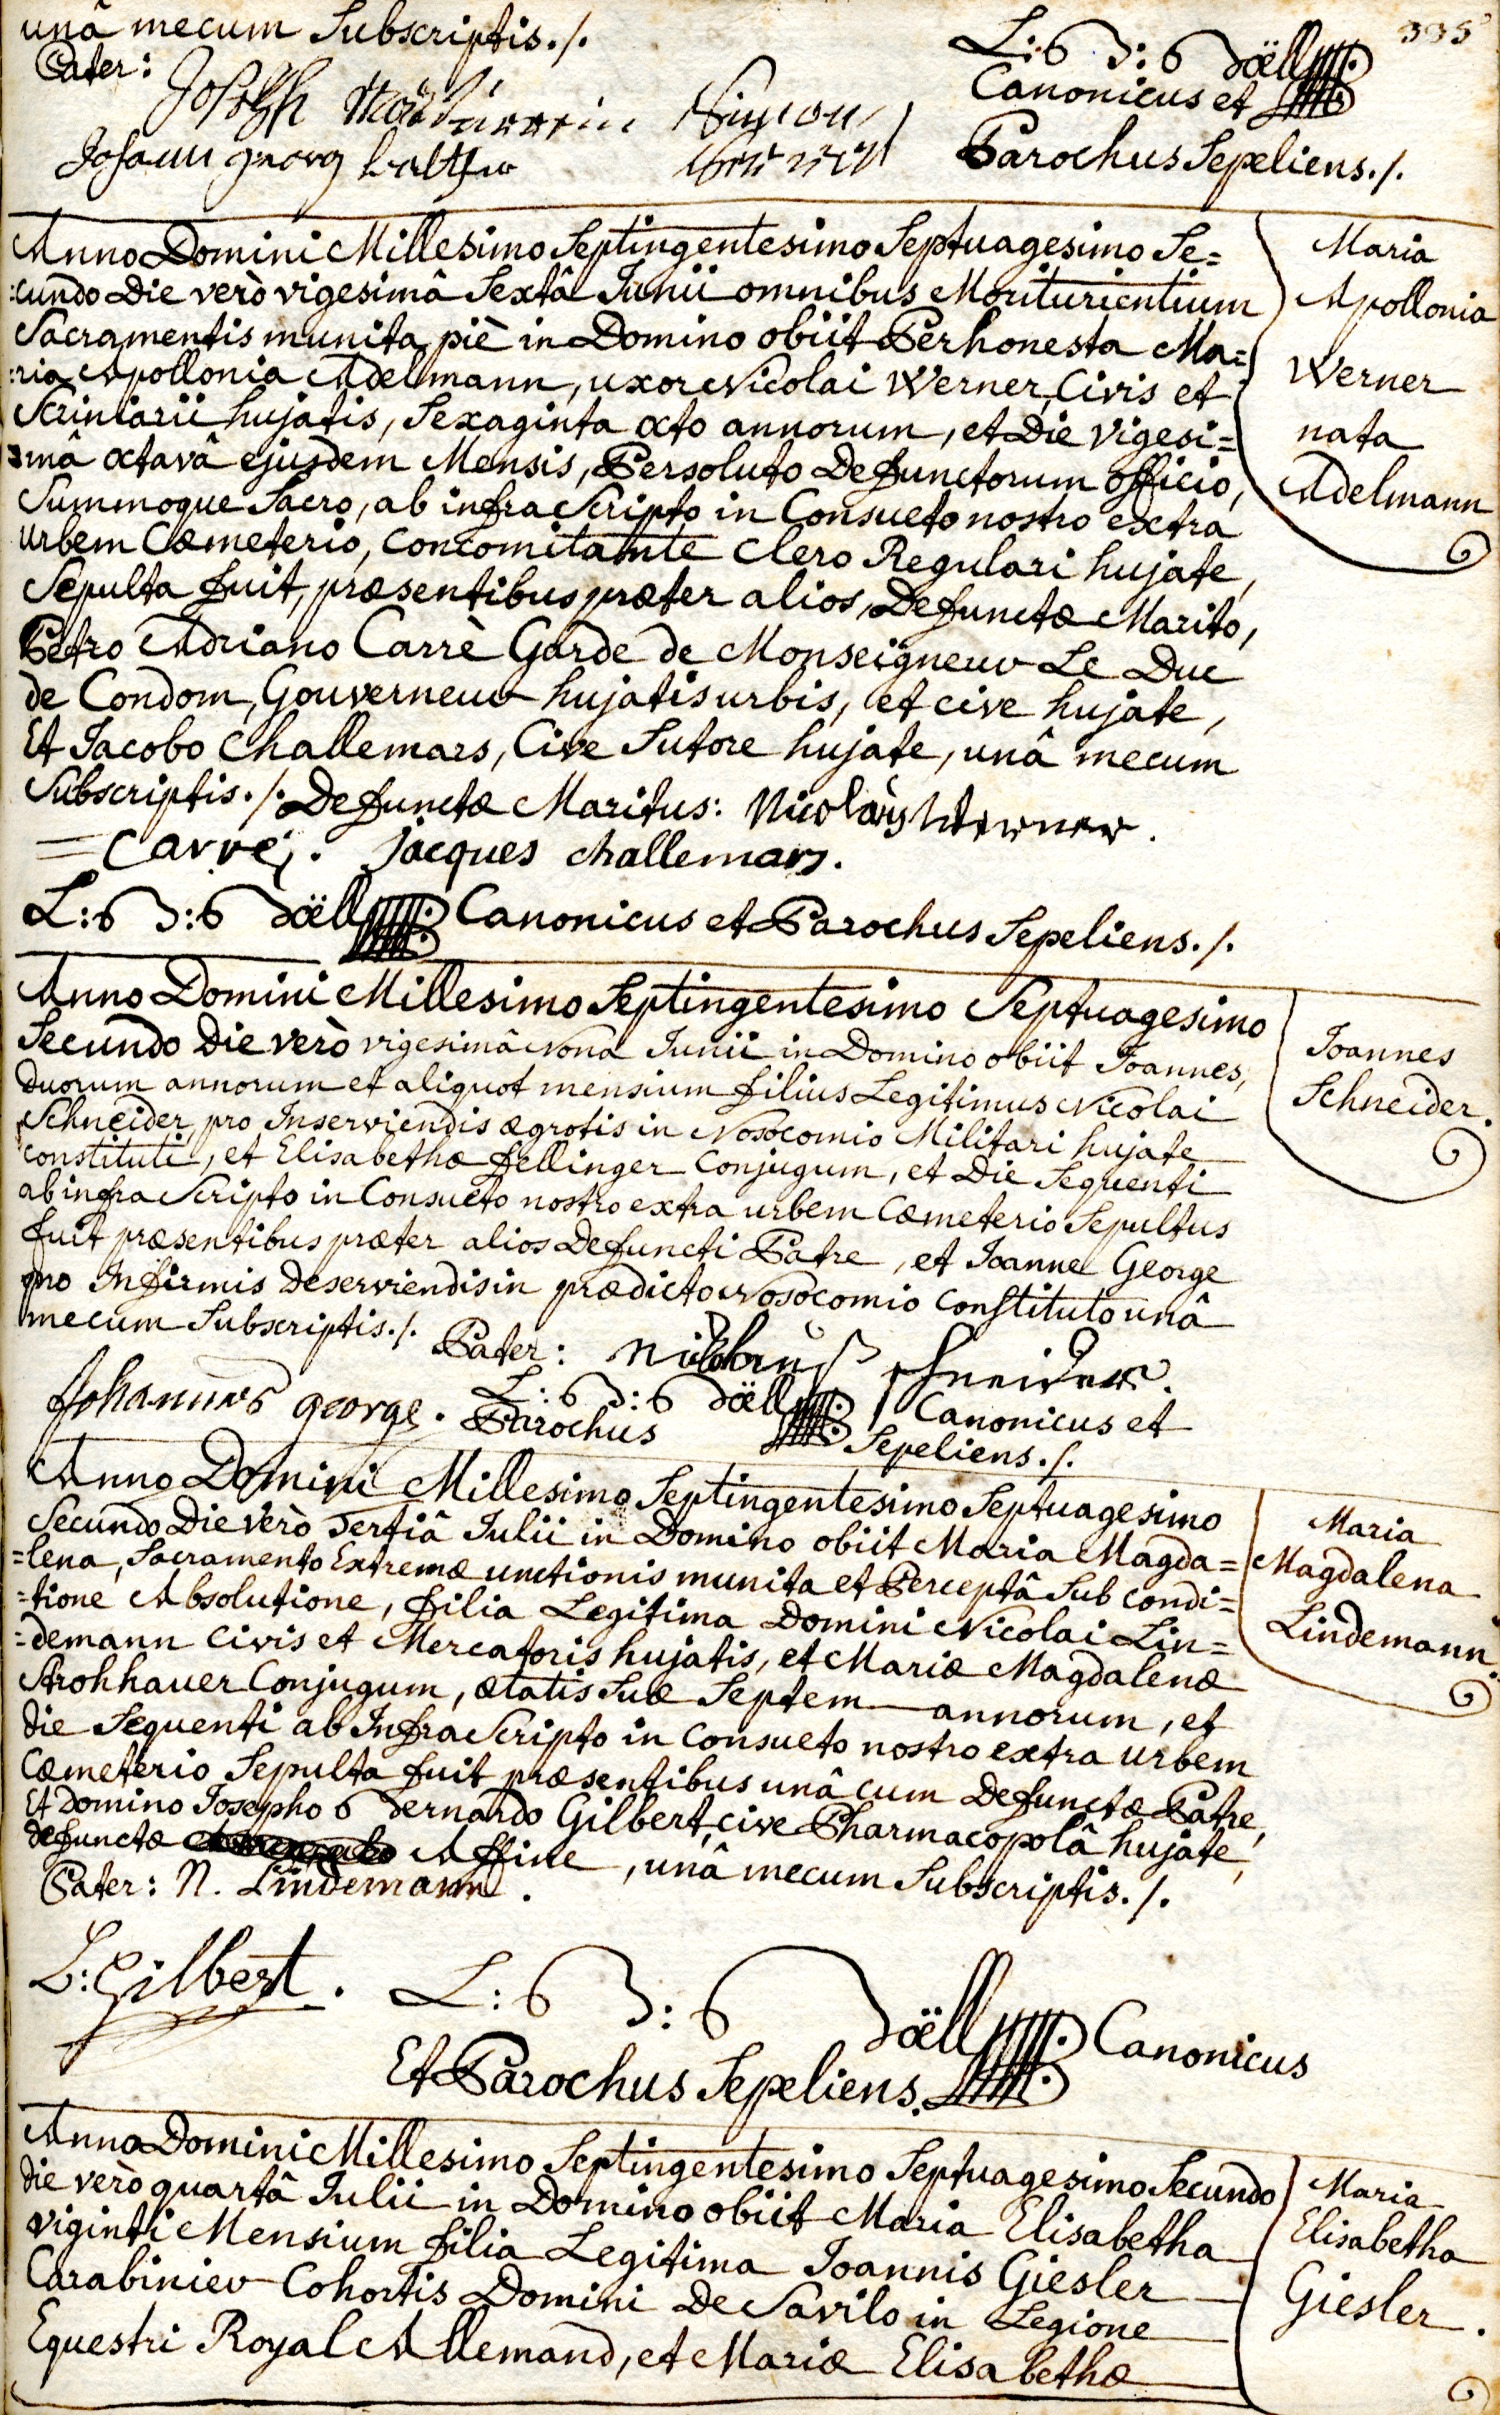 335
unâ mecum Subscriptis./.
Pater:
Joseph
Johann georg
Simon
L: B: Doëll
Canonicus et
Parochus Sepeliens./.
Anno Domini Millesimo Septingentesimo Septuagesimo Se=
=cundo Die verò vigesimâ Sextâ Junii omnibus Moriturientium
Sacramentis munita piè in Domino obiit Perhonesta Ma=
=ria Apollonia Adelmann, uxor Nicolai Werner, Civis et
Scriniarii hujatis, Sexaginta octo annorum, et Die Vigesi=
=mâ octavâ ejusdem Mensis, Persoluto Defunctorum officio,
Summoque Sacro, ab infra Scripto in Consueto nostro extra
urbem Cœmeterio, Concomitante Clero Regulari hujate,
Sepulta fuit, præsentibus præter alios, Defunctæ Marito,
Petro Adriano Carrè Garde de Monseigneur Le Duc
de Condom, Gouverneur hujatis urbis, et cive hujate,
Et Jacobo Challemars, Cive Sutore hujate, unâ mecum
Subscriptis./. Defunctæ Maritus: Nicolaus Werner.
= Carré. jacques challemars.
L: B: Doëll Canonicus et Parochus Sepeliens./.
Maria
Apollonia
Werner
nata
Adelmann
Anno Domini Millesimo Septingentesimo Septuagesimo
Secundo Die verò vigesimâ Nona Junii in Domino obiit Joannes,
duorum annorum et aliquot mensium filius Legitimus Nicolai
Schneider, pro Inserviendis ægrotis in Nosocomio Militari hujate
constituti, et Elisabethæ Fellinger Conjugum, et Die Sequenti
ab infra Scripto in Consueto nostro extra urbem Cœmeterio Sepultus
fuit præsentibus præter alios Defuncti Patre, et Joanne George
pro Infirmis Deserviendis in prædicto Nosocomio constituto unâ
mecum Subscriptis./. Pater: schneider.
Johannes george. L: B: Doëll Canonicus et
Parochus Sepeliens./.
Joannes
Schneider.
Anno Domini Millesimo Septingentesimo Septuagesimo
Secundo Die verò Tertiâ Julii in Domino obiit Maria Magda=
=lena, Sacramento Extremæ unctionis munita et Perceptâ Sub condi=
=tione Absolutione, filia Legitima Domini Nicolai Lin=
=demann Civis et Mercatoris hujatis, et Mariæ Magdalenæ
Strohhauer Conjugum, ætatis Suæ Septem annorum, et
die Sequenti ab Infra Scripto in Consueto nostro extra urbem
Cœmeterio Sepulta fuit præsentibus unâ cum Defunctæ Patre,
Et Domino Josepho Bernardo Gilbert, cive Pharmacopolâ hujate,
defunctæ Affine, unâ mecum Subscriptis./.
Pater: N. Lindemann.
Gilbert.
L: B: Doëll Canonicus
Et Parochus Sepeliens.
Maria
Magdalena
Lindemann.
Anno Domini Millesimo Septingentesimo Septuagesimo Secundo
die verò quartâ Julii in Domino obiit Maria Elisabetha
viginti Mensium filia Legitima Joannis Giesler
Carabinier Cohortis Domini De Savilo in Legione
Equestri Royal Allemand, et Mariæ Elisabethæ
Maria
Elisabetha
Giesler.